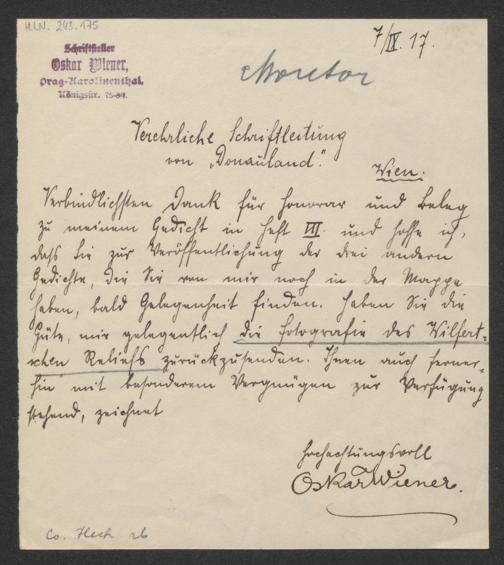 H.I.N. 243.175
Schriftsteller
Oskar Wiener,
Prag-Karolinenthal,
Königstr.
7/IV. 17.
Verehrliche Schriftleitung
von „Donauland".
Wien.
Verbindlichsten Dank für Honorar und Beleg
zu meinem Gedicht in Heft VII. und hoffe ich,
dass Sie zur Veröffentlichung der drei andern
Gedichte, die Sie von mir noch in der Mappe
haben, bald Gelegenheit finden. Haben Sie die
Güte, mir gelegentlich die Fotografie des Wilfert-
schen Reliefs zurückzusenden. Ihnen auch ferner-
hin mit besonderem Vergnügen zur Verfügung
stehend, zeichnet
Hochachtungsvoll
Oskar Wiener.
Co.